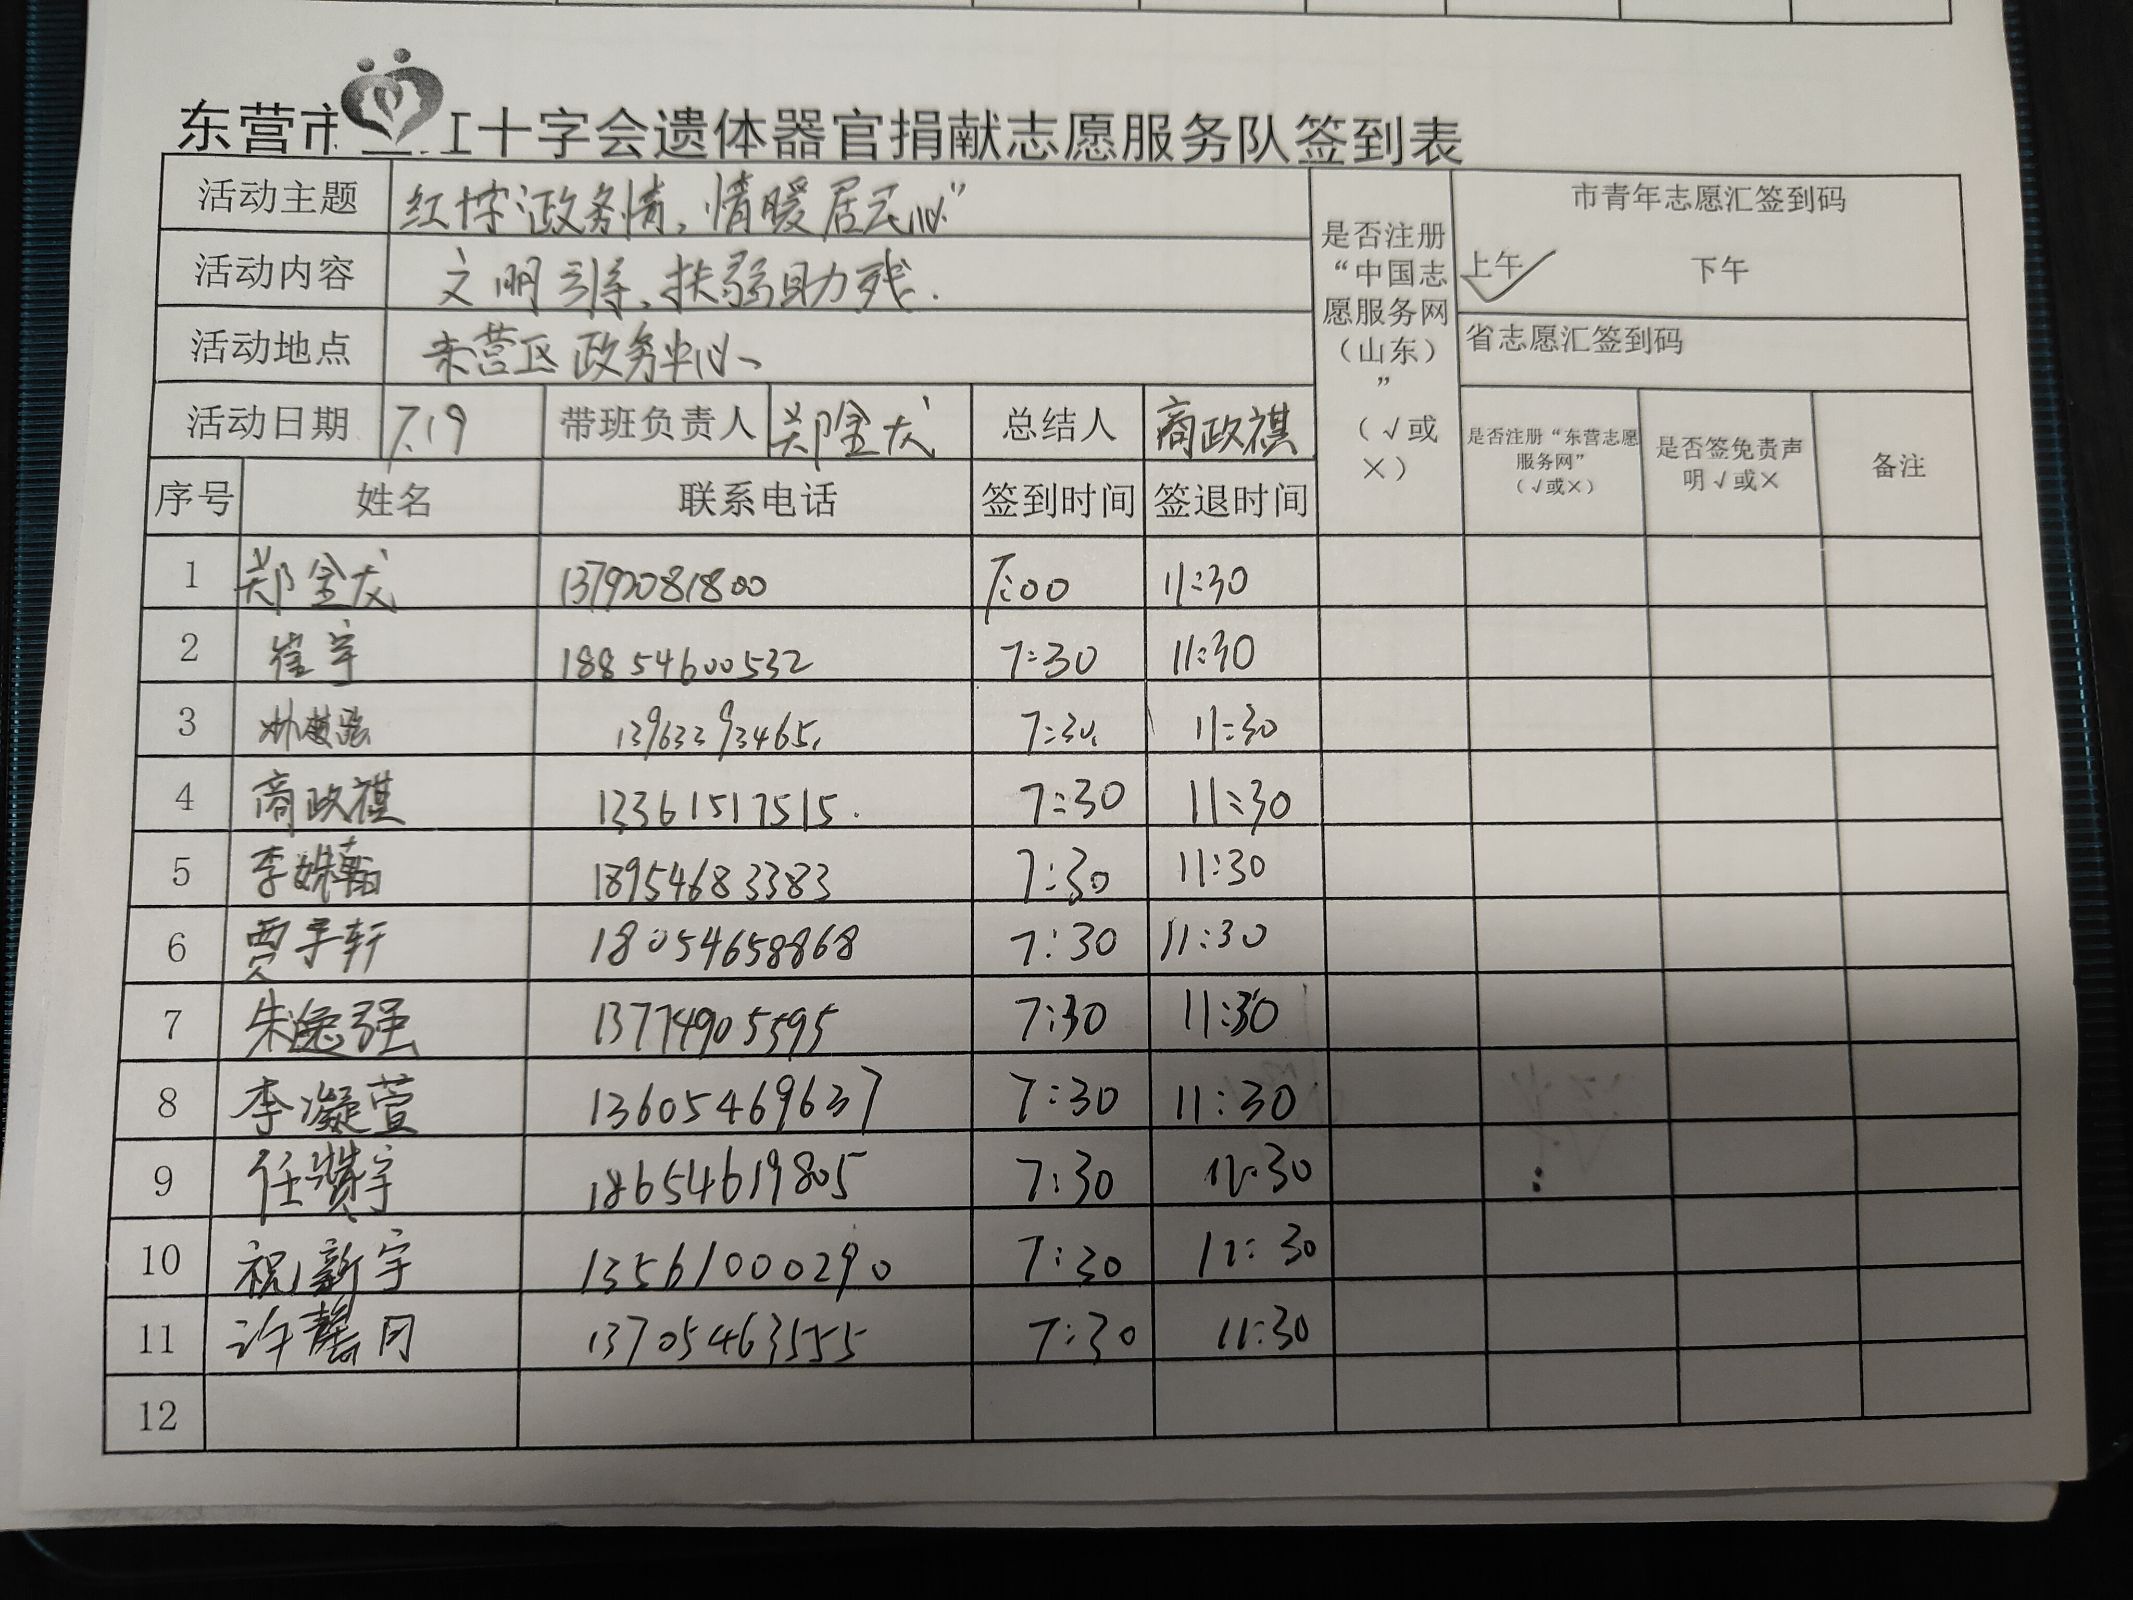 东营市 红十字会遗体器官捐献志愿服务队签到表
活动主题 红十字政务情,情暖居民心”
活动内容 文明引导、扶弱助残.
活动地点 东营区政务中心
活动日期 7.19 带班负责人 郑金龙 总结人 商政祺
是否注册“中国志愿服务网（山东）”（√或×）
市青年志愿汇签到码
上午✓ 下午
省志愿汇签到码
是否注册“东营志愿服务网”（√或×） 是否签免责声明√或× 备注
序号 姓名 联系电话 签到时间 签退时间
1 郑金龙 13792081800 7:00 11:30
2 崔宇 18854600532 7:30 11:30
3 13963393465 7:30 11:30
4 商政祺 13361517515. 7:30 11:30
5 李姝翰 18954683383 7:30 11:30
6 贾子轩 18054658868 7:30 11:30
7 朱逸强 13774905595 7:30 11:30
8 李凝萱 13605469637 7:30 11:30
9 任赞宇 18654619805 7:30 11:30
10 祝新宇 13561000290 7:30 11:30
11 许馨月 13705463555 7:30 11:30
12